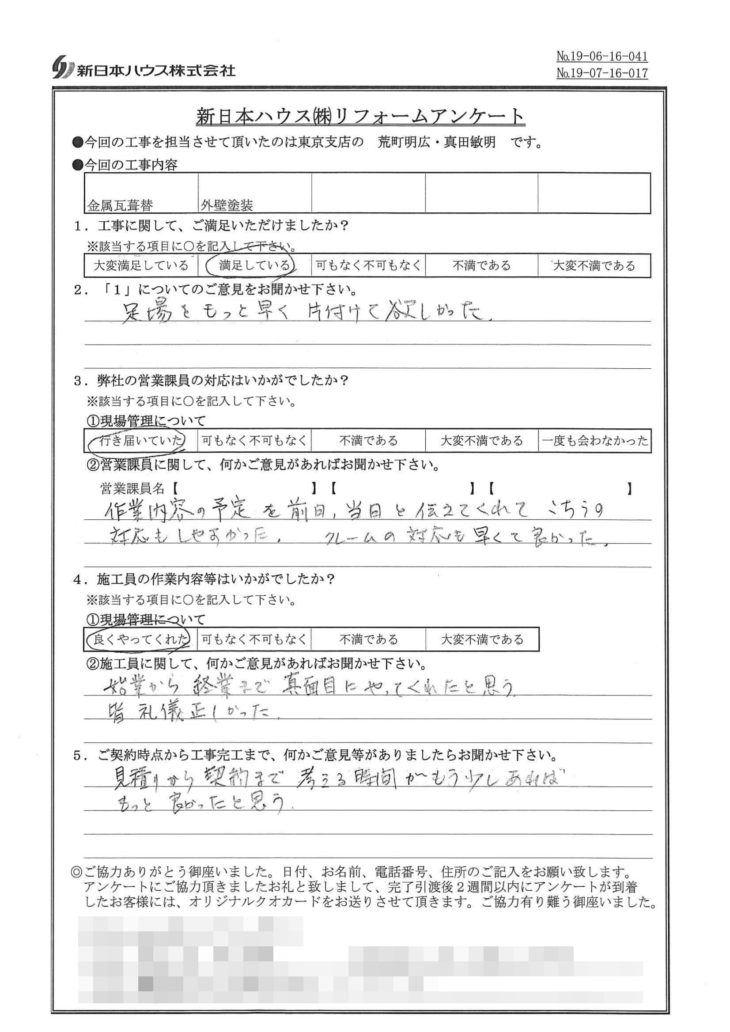 新日本ハウス株式会社
№19-06-16-041
№19-07-16-017
新日本ハウス㈱リフォームアンケート
●今回の工事を担当させて頂いたのは東京支店の 荒町明広・真田敏明 です。
●今回の工事内容
金属瓦葺替 外壁塗装
1．工事に関して、ご満足いただけましたか？
※該当する項目に○を記入して下さい。
大変満足している 満足している 可もなく不可もなく 不満である 大変不満である
2．「1」についてのご意見をお聞かせ下さい。
足場をもっと早く 片付けて欲しかった．
3．弊社の営業課員の対応はいかがでしたか？
※該当する項目に○を記入して下さい。
①現場管理について
行き届いていた 可もなく不可もなく 不満である 大変不満である 一度も会わなかった
②営業課員に関して、何かご意見があればお聞かせ下さい。
営業課員名【 】【 】【 】
作業内容の予定を前日，当日と伝えてくれて こちらの
対応もしやすかった． クレームの対応も早くて良かった．
4．施工員の作業内容等はいかがでしたか？
※該当する項目に○を記入して下さい。
①現場管理について
良くやってくれた 可もなく不可もなく 不満である 大変不満である
②施工員に関して、何かご意見があればお聞かせ下さい。
始業から 終業まで 真面目にやってくれたと思う．
皆 礼儀正しかった．
5．ご契約時点から工事完工まで、何かご意見等がありましたらお聞かせ下さい。
見積りから契約まで 考える時間がもう少しあれば
もっと 良かったと思う．
◎ご協力ありがとう御座いました。日付、お名前、電話番号、住所のご記入をお願い致します。
アンケートにご協力頂きましたお礼と致しまして、完了引渡後2週間以内にアンケートが到着
したお客様には、オリジナルクオカードをお送りさせて頂きます。ご協力有り難う御座いました。